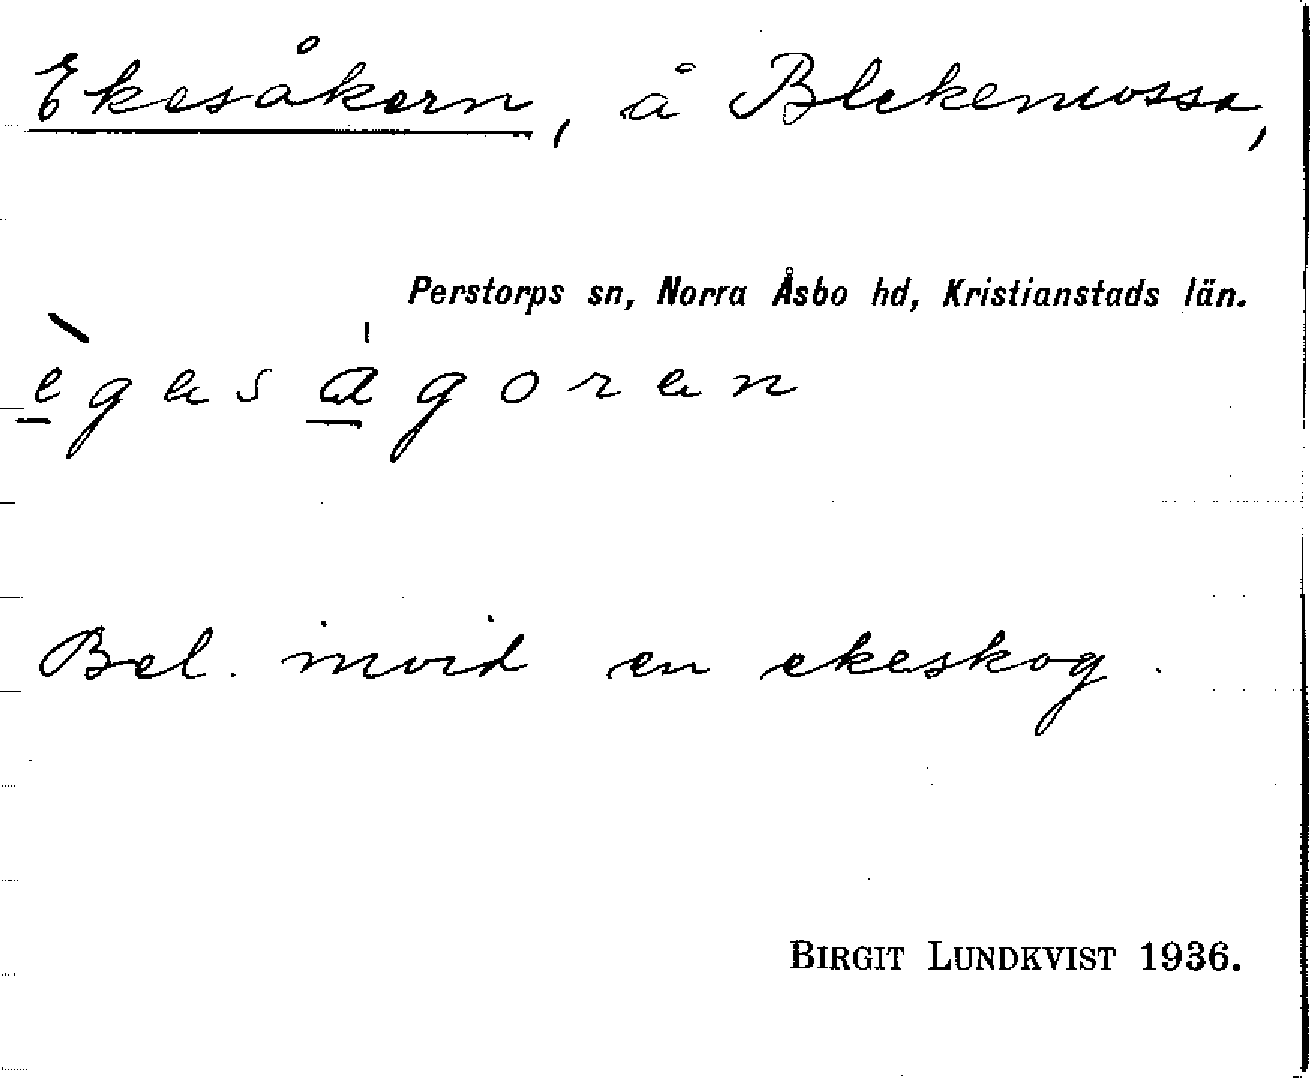 Ekesåkern, å Blekemossa,
Perstorps sn, Norra Åsbo hd, Kristianstads län.
ègəsågorən
Bel. invid en ekeskog.
BIRGIT LUNDKVIST 1936.